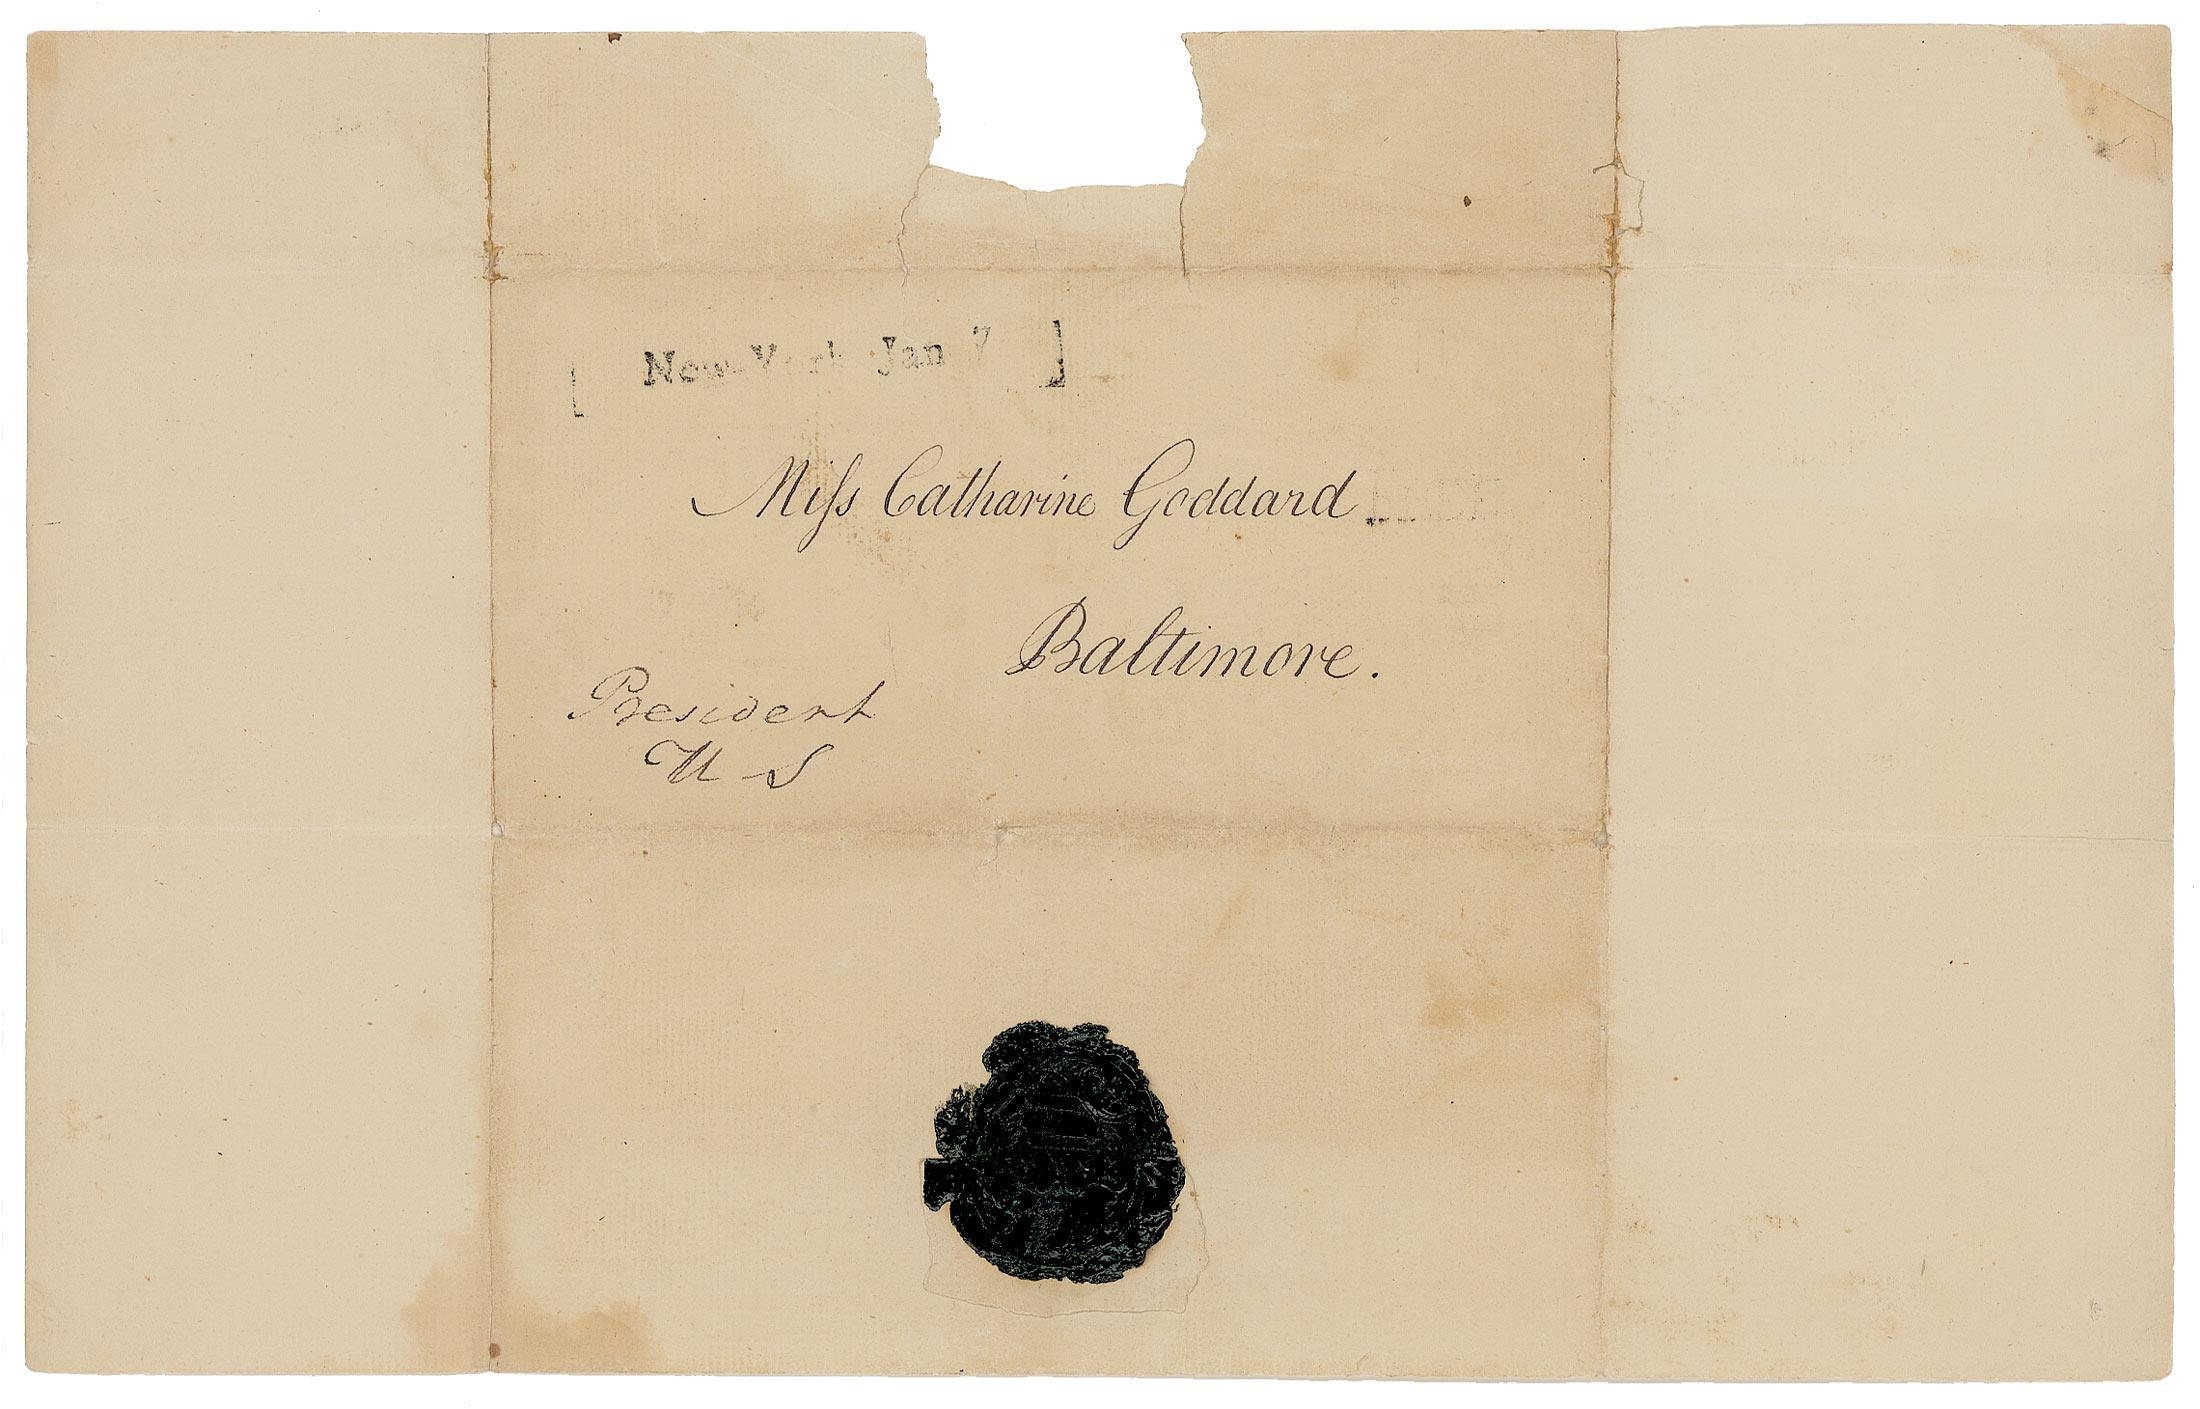 [ New-York Jan 7 ]
Miſs Catharine Goddard
Baltimore.
President
U S